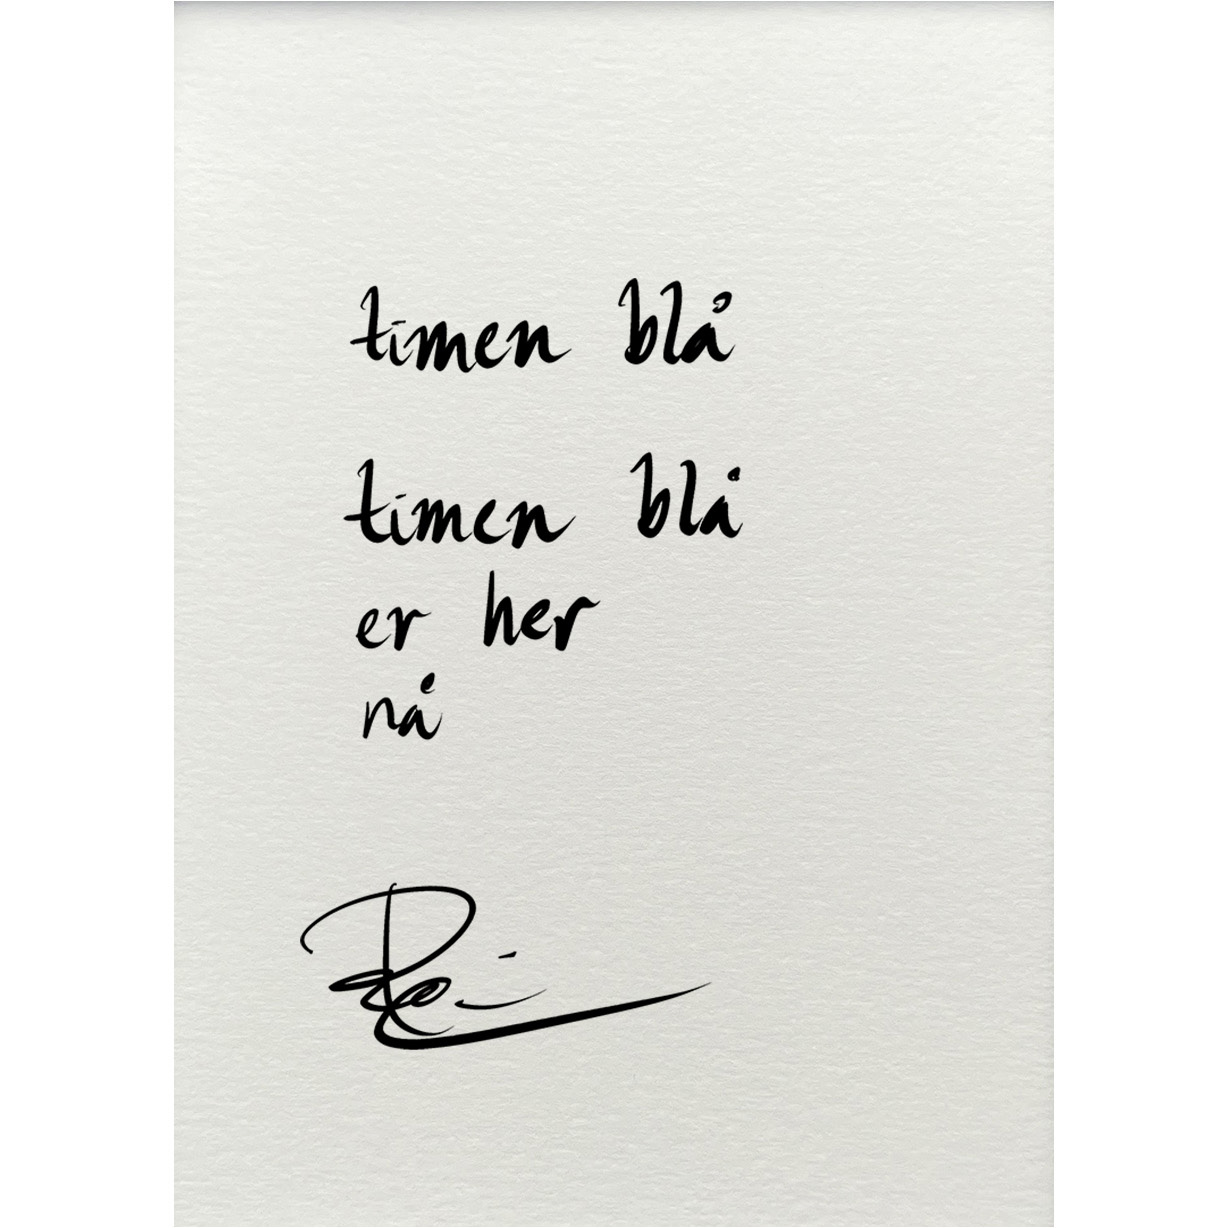 timen blå
timen blå
er her
nå